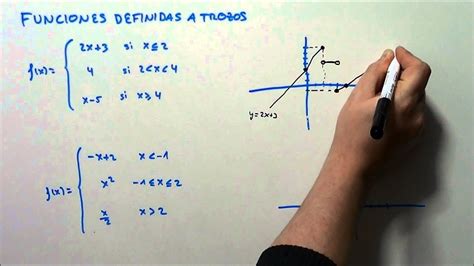 FUNCIONES DEFINIDAS A TROZOS
f(x)= { 2x+3 si x≤2
4 si 2<x<4
x-5 si x≥4
y=2x+3
f(x)= { -x+2 x<-1
x² -1≤x≤2
x/2 x>2